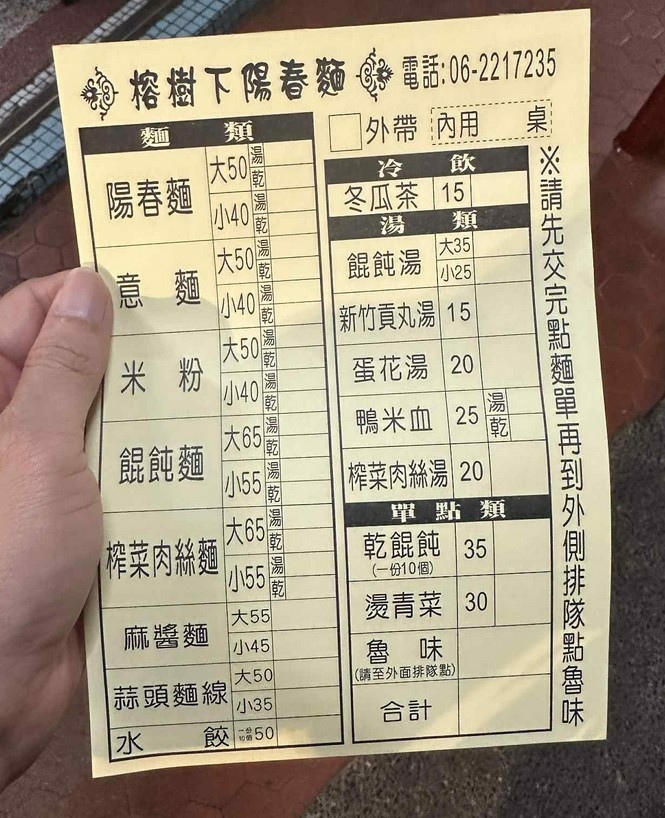 榕樹下陽春麵 電話:06-2217235
外帶 內用 桌
麵類
陽春麵 大50 湯 乾
小40 湯 乾
意麵 大50 湯 乾
小40 湯 乾
米粉 大50 湯 乾
小40 湯 乾
餛飩麵 大65 湯 乾
小55 湯 乾
榨菜肉絲麵 大65 湯 乾
小55 湯 乾
麻醬麵 大55
小45
蒜頭麵線 大50
小35
水餃 一份10個 50
冷飲
冬瓜茶 15
湯類
餛飩湯 大35
小25
新竹貢丸湯 15
蛋花湯 20
鴨米血 25 湯 乾
榨菜肉絲湯 20
單點類
乾餛飩 35
(一份10個)
燙青菜 30
魯味
(請至外面排隊點)
合計
※請先交完點麵單再到外側排隊點魯味